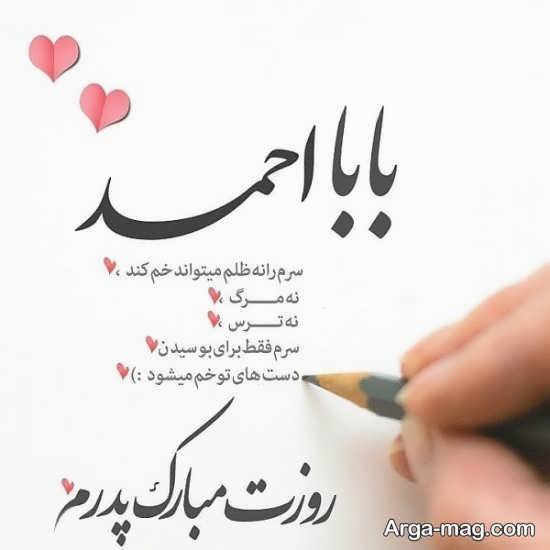 بابا احمد
سرم را نه ظلم میتواند خم کند ،
نه مـــرگ ،
نه تـــرس ،
سرم فقط برای بوسیدن
دست های تو خم میشود :)
روزت مبارک پدرم
Arga-mag.com